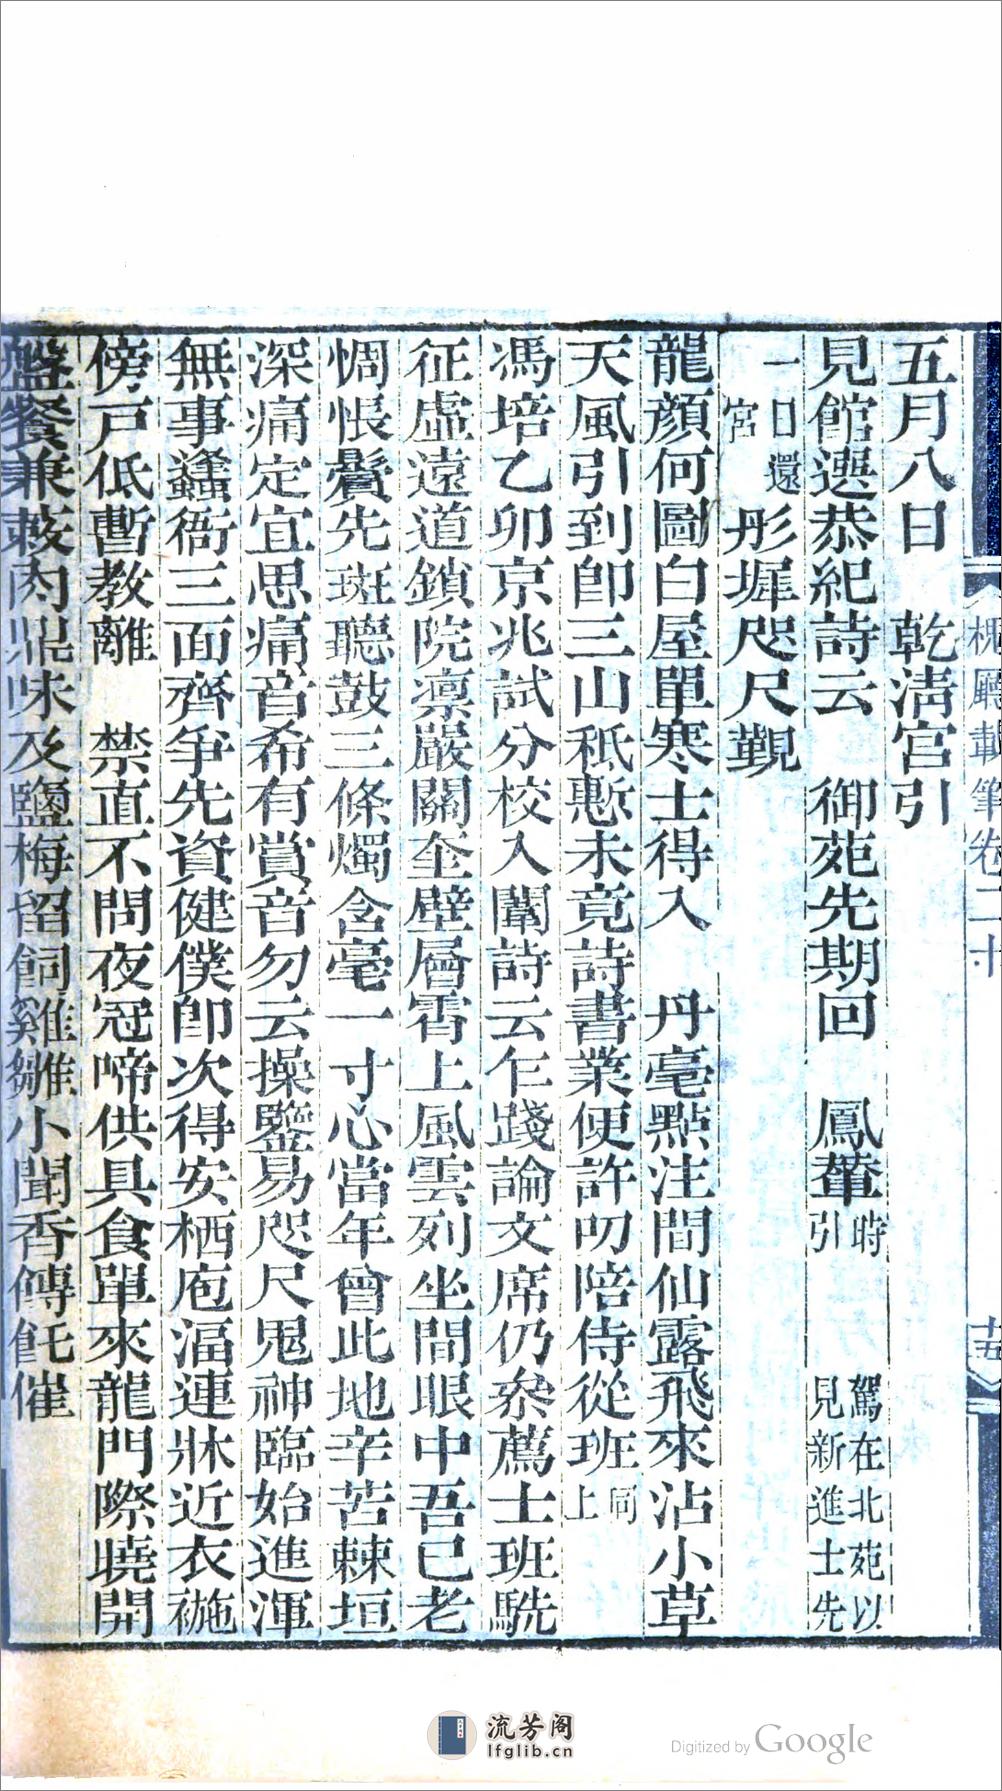 槐廳載筆卷二十
五月八日　乾淸宮引
見館選恭紀詩云　御苑先期回　鳳輦時　駕在北苑以引　見新進士先
一日還宮　彤墀咫尺覲
龍顏何圖白屋單寒士得入　丹毫點注間仙露飛來沾小草
天風引到卽三山秪慙未竟詩書業便許叨陪侍從班同上
馮培乙卯京兆試分校入闈詩云乍踐論文席仍叅薦士班駪
征虛遠道鎖院凛嚴關奎壁層霄上風雲列坐間眼中吾已老
惆悵鬢先斑聽鼓三條燭含毫一寸心當年曾此地辛苦棘垣
深痛定宜思痛音希有賞音勿云操鑒易咫尺鬼神臨始進渾
無事蠭衙三面齊爭先資健僕卽次得安栖庖湢連牀近衣襹
傍戸低暫教離　禁直不問夜冠啼供具食單來龍門際曉開
盤餐兼蔌肉鼎味及鹽梅留飼雞雛小聞香傅飥催
流芳阁
lfglib.cn
Digitized by Google